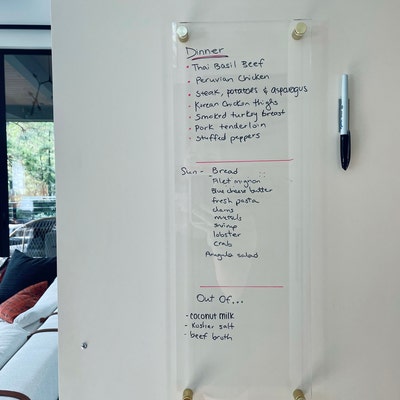 Dinner
• Thai Basil Beef
• Peruvian Chicken
• Steak, potatoes & asparagus
• Korean Chicken thighs
• Smoked turkey breast
• Pork tenderloin
• Stuffed peppers
Sun - Bread
Filet mignon
Blue cheese butter
fresh pasta
clams
mussels
shrimp
lobster
crab
Arugula salad
Out Of...
- coconut milk
- Kosher salt
- beef broth